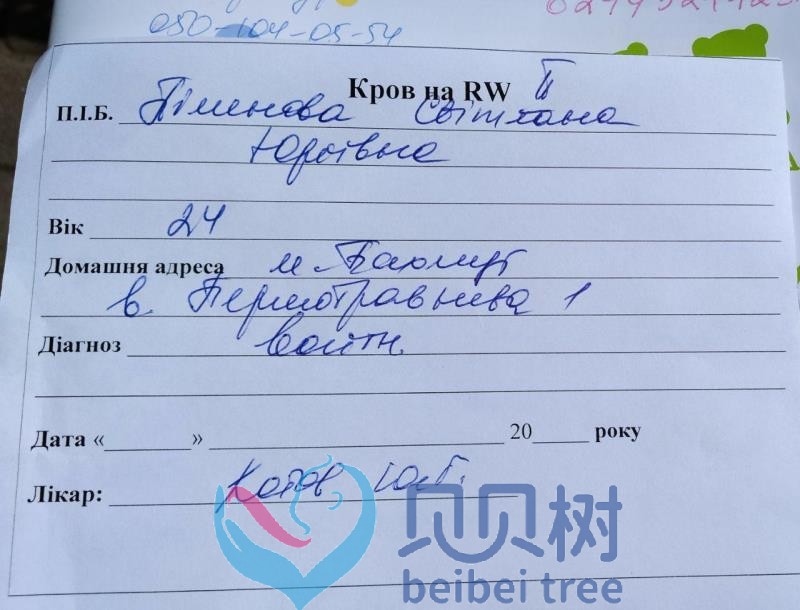 050-104-05-54
Кров на RW II
П.І.Б. Піменова Світлана
Юріївна
Вік 24
Домашня адреса м. Бахмут
в. Першотравнева 1
Діагноз вагітн.
Дата «      » 20      року
Лікар: Котов Ю.Г.
贝贝树
beibei tree